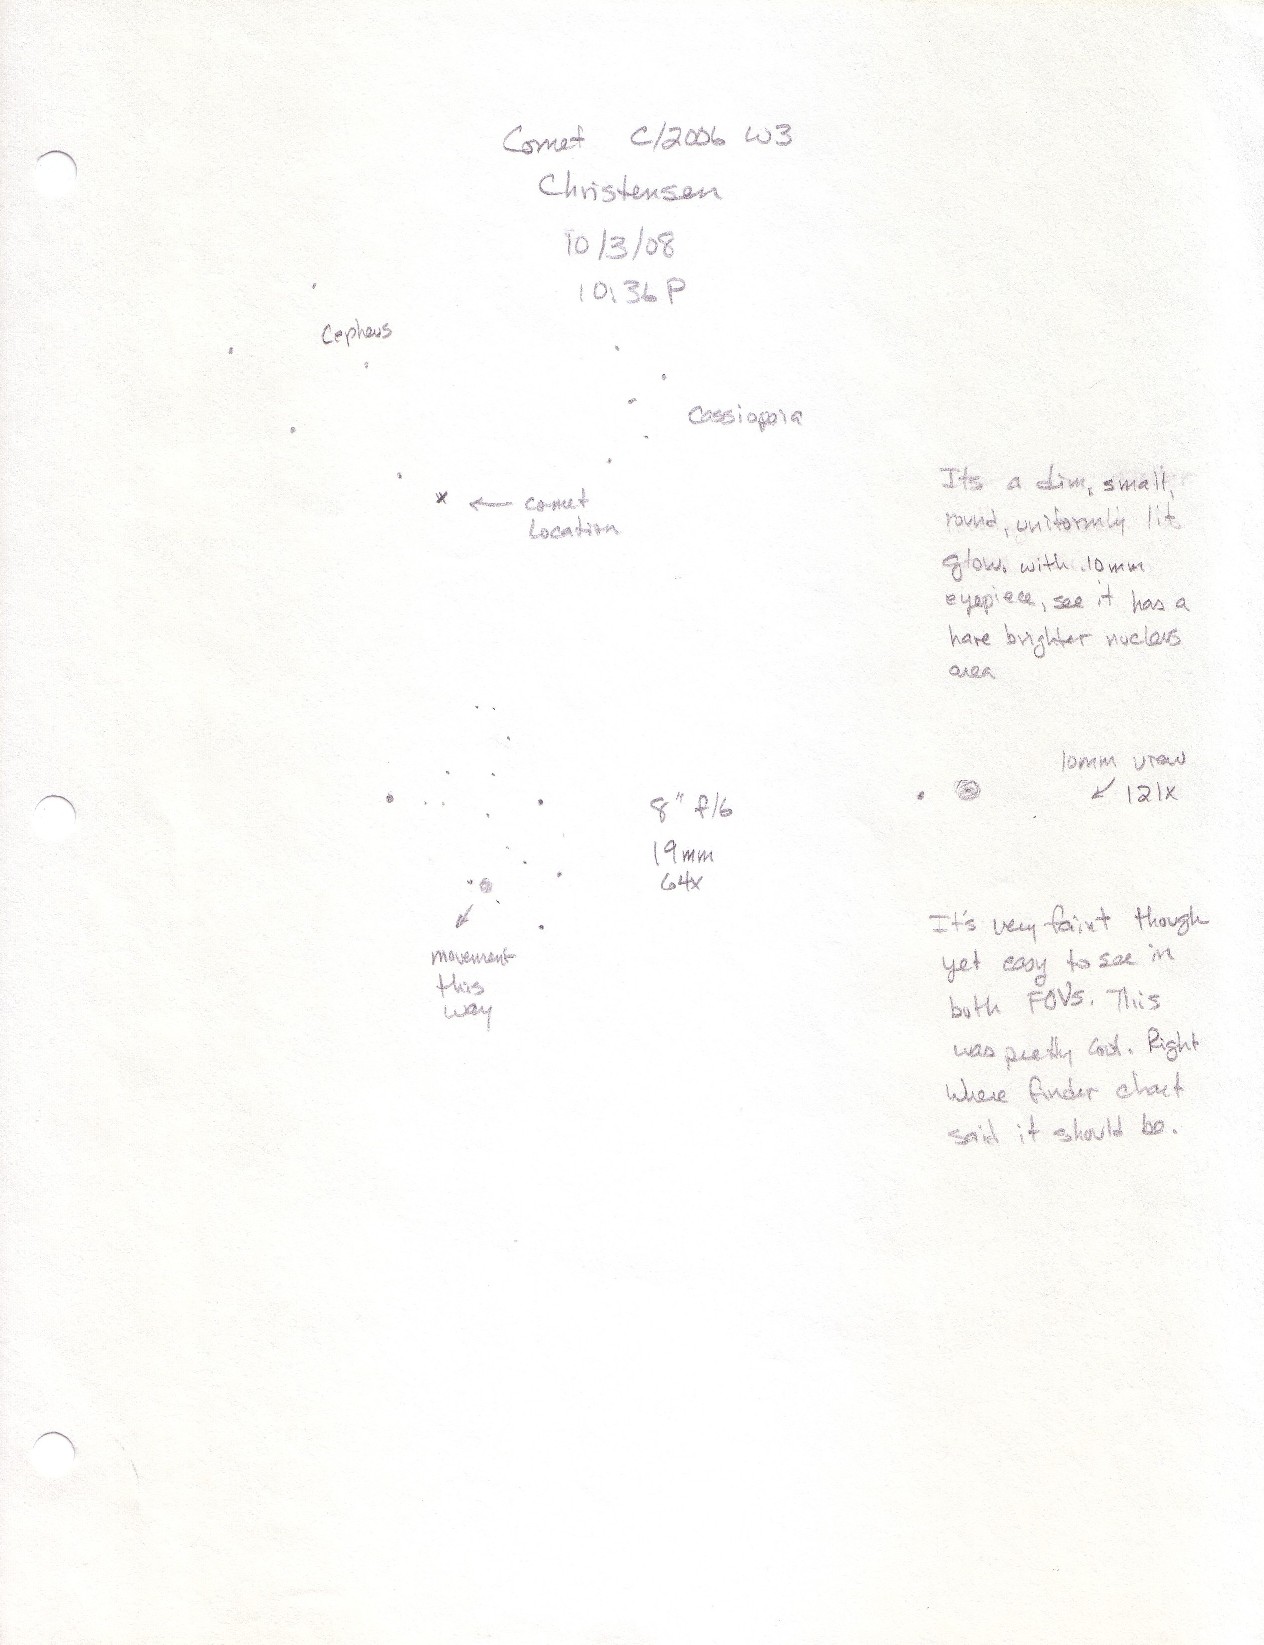 Comet C/2006 W3
Christensen
10/3/08
10:36 P
Cepheus
Cassiopeia
← comet
Location
Its a dim, small,
round, uniformly lit
glow. with 10mm
eyepiece, see it has a
hare brighter nucleus
area
10mm view
121x
8" f/6
19mm
64x
movement
this
way
It's very faint though
yet easy to see in
both FOVs. This
was pretty cool. Right
where finder chart
said it should be.